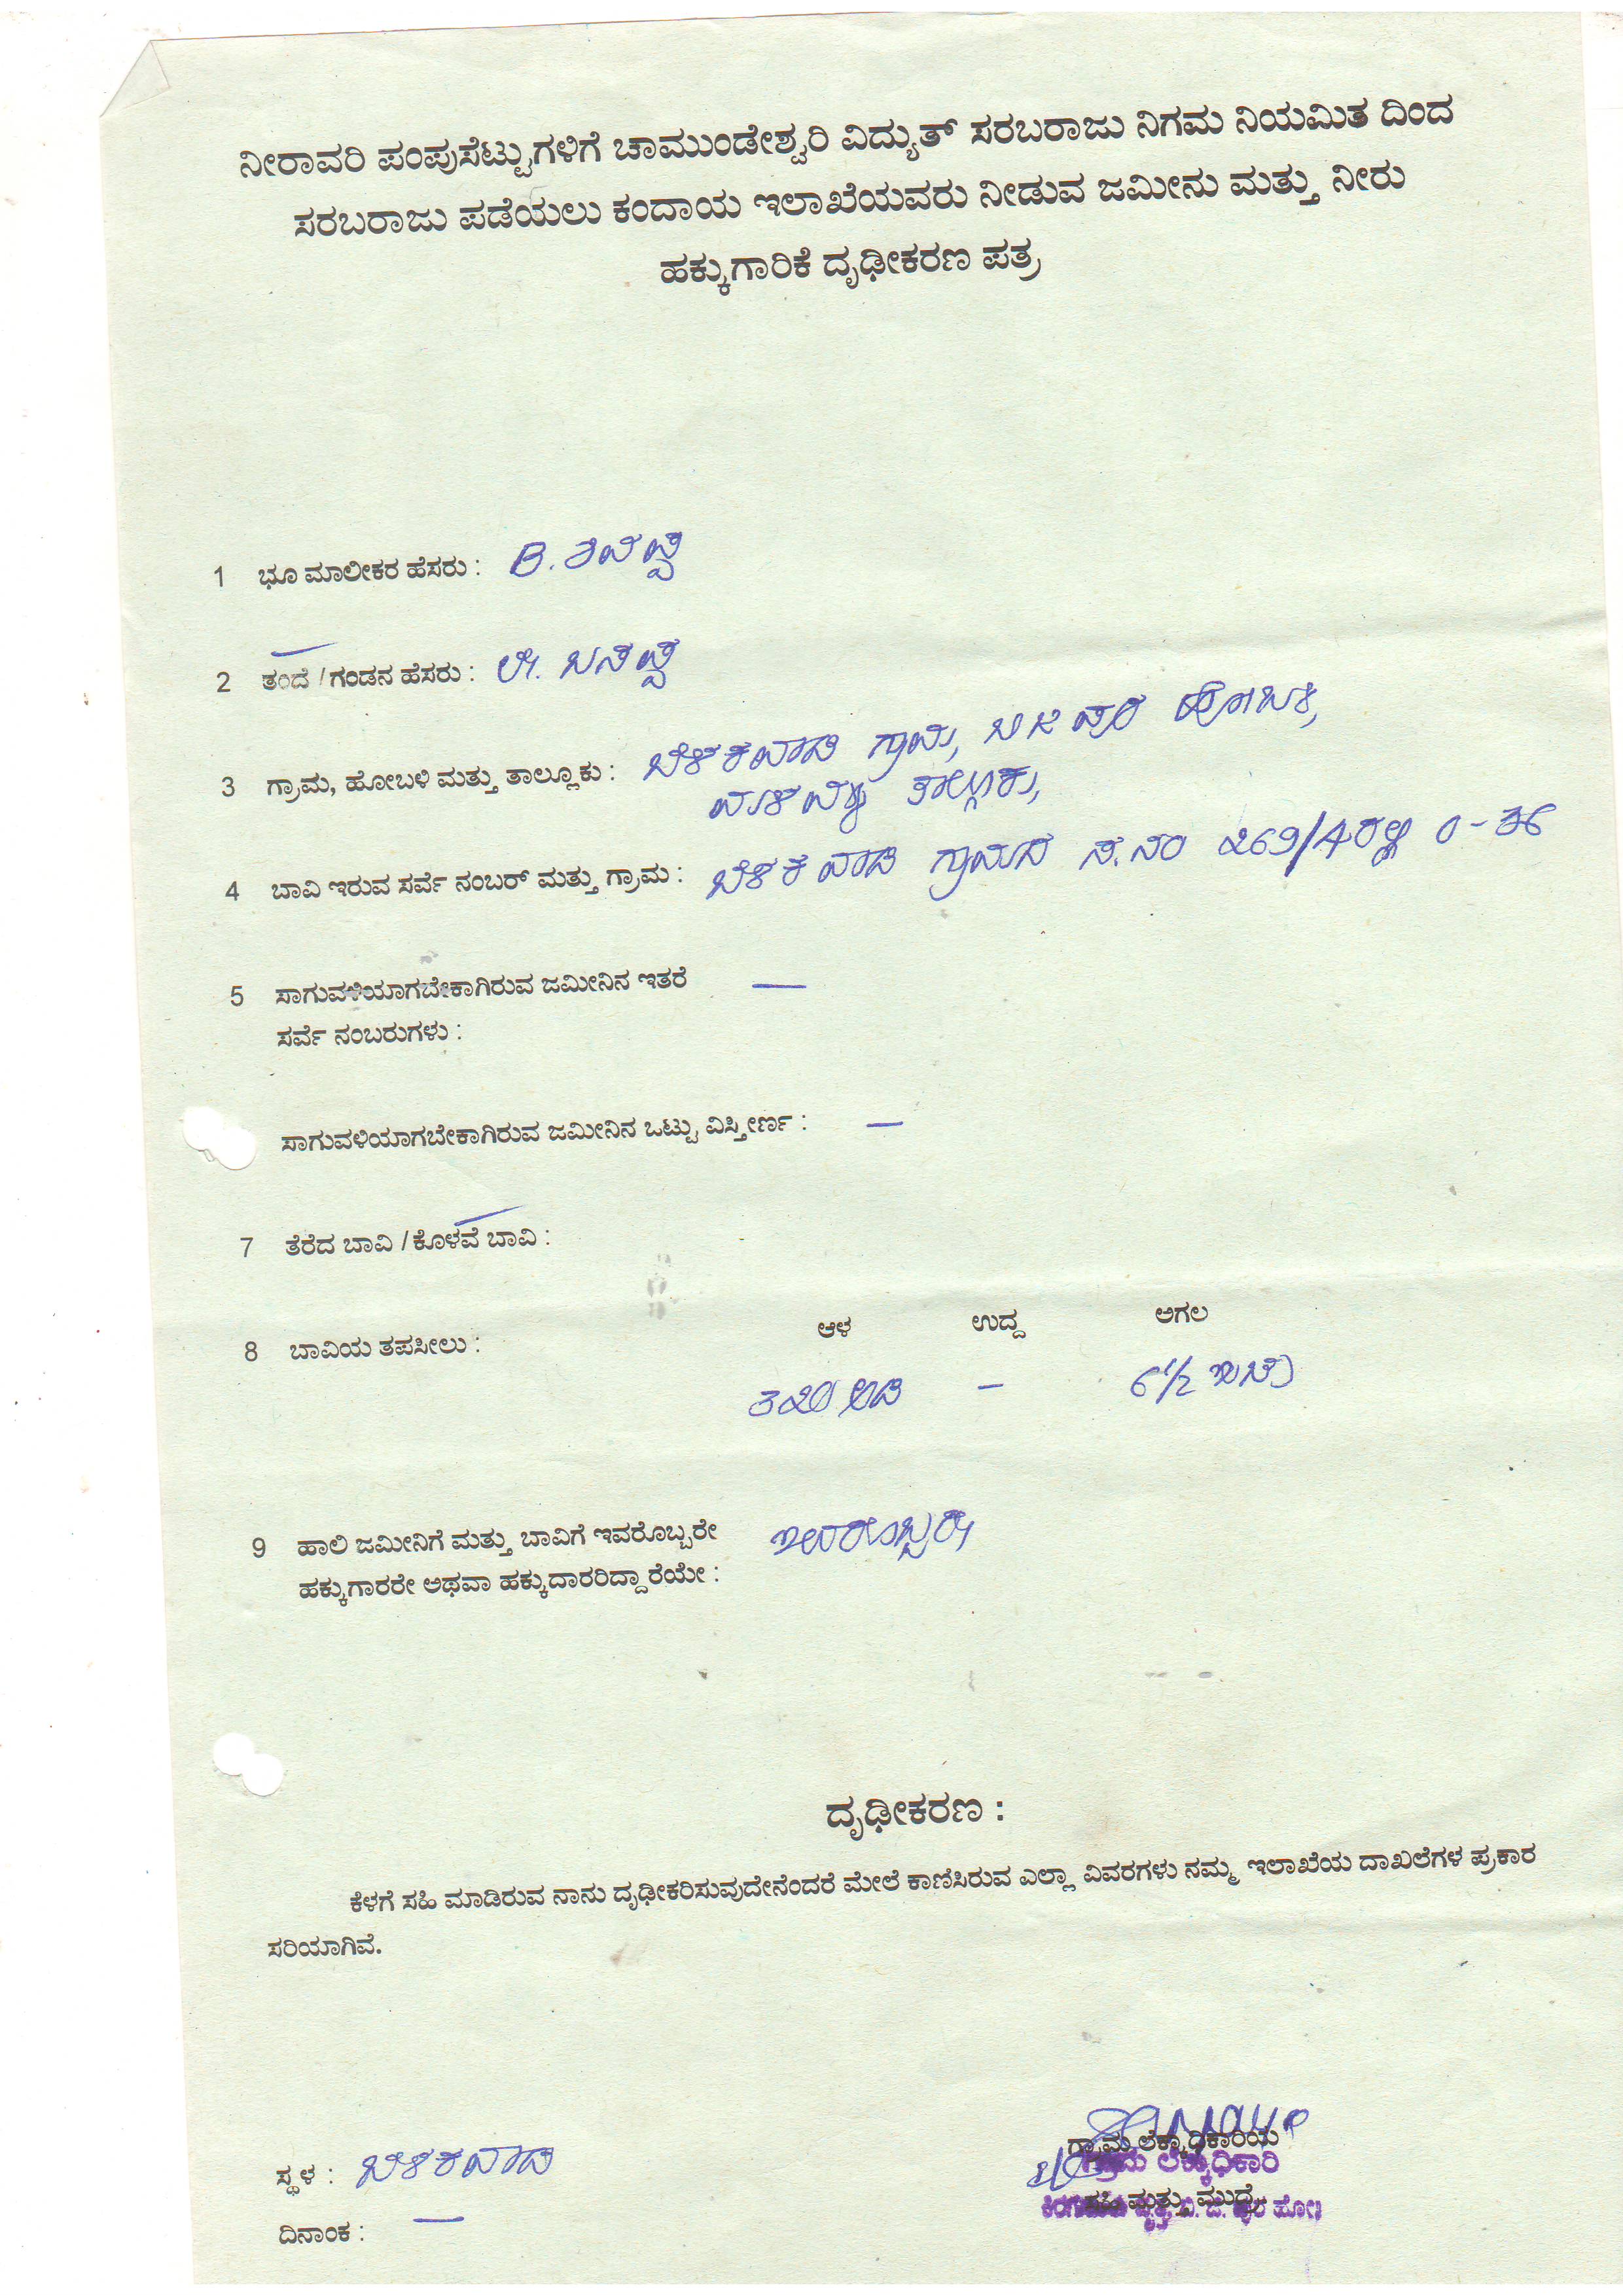 ನೀರಾವರಿ ಪಂಪುಸೆಟ್ಟುಗಳಿಗೆ ಚಾಮುಂಡೇಶ್ವರಿ ವಿದ್ಯುತ್ ಸರಬರಾಜು ನಿಗಮ ನಿಯಮಿತ ದಿಂದ
ಸರಬರಾಜು ಪಡೆಯಲು ಕಂದಾಯ ಇಲಾಖೆಯವರು ನೀಡುವ ಜಮೀನು ಮತ್ತು ನೀರು
ಹಕ್ಕುಗಾರಿಕೆ ದೃಢೀಕರಣ ಪತ್ರ
1 ಭೂ ಮಾಲೀಕರ ಹೆಸರು : B. ಶಿವಪ್ಪ
2 ತಂದೆ / ಗಂಡನ ಹೆಸರು : ಲೇ. ಬಸಪ್ಪ
3 ಗ್ರಾಮ, ಹೋಬಳಿ ಮತ್ತು ತಾಲ್ಲೂಕು : ಬೆಳಕವಾಡಿ ಗ್ರಾಮ, ಬಿ ಜಿ ಪುರ ಹೋಬಳಿ,
ಮಳವಳ್ಳಿ ತಾಲ್ಲೂಕು,
4 ಬಾವಿ ಇರುವ ಸರ್ವೆ ನಂಬರ್ ಮತ್ತು ಗ್ರಾಮ : ಬೆಳಕವಾಡಿ ಗ್ರಾಮದ ಸ.ನಂ ೨69/4ರಲ್ಲಿ 0-36
5 ಸಾಗುವಳಿಯಾಗಬೇಕಾಗಿರುವ ಜಮೀನಿನ ಇತರೆ —
ಸರ್ವೆ ನಂಬರುಗಳು :
ಸಾಗುವಳಿಯಾಗಬೇಕಾಗಿರುವ ಜಮೀನಿನ ಒಟ್ಟು ವಿಸ್ತೀರ್ಣ : —
7 ತೆರೆದ ಬಾವಿ / ಕೊಳವೆ ಬಾವಿ :
8 ಬಾವಿಯ ತಪಸೀಲು : ಆಳ ಉದ್ದ ಅಗಲ
3೨0 ಅಡಿ – 6 1/2 ಇಂಚು
9 ಹಾಲಿ ಜಮೀನಿಗೆ ಮತ್ತು ಬಾವಿಗೆ ಇವರೊಬ್ಬರೇ ಇವರೊಬ್ಬರೇ
ಹಕ್ಕುಗಾರರೇ ಅಥವಾ ಹಕ್ಕುದಾರರಿದ್ದಾರೆಯೇ :
ದೃಢೀಕರಣ :
ಕೆಳಗೆ ಸಹಿ ಮಾಡಿರುವ ನಾನು ದೃಢೀಕರಿಸುವುದೇನೆಂದರೆ ಮೇಲೆ ಕಾಣಿಸಿರುವ ಎಲ್ಲಾ ವಿವರಗಳು ನಮ್ಮ ಇಲಾಖೆಯ ದಾಖಲೆಗಳ ಪ್ರಕಾರ
ಸರಿಯಾಗಿವೆ.
ಗ್ರಾಮ ಲೆಕ್ಕಾಧಿಕಾರಿಯ
ಗ್ರಾಮ ಲೆಕ್ಕಾಧಿಕಾರಿ
ಸ್ಥಳ : ಬೆಳಕವಾಡಿ
ಸಹಿ ಮತ್ತು ಮುದ್ರೆ
ದಿನಾಂಕ : —